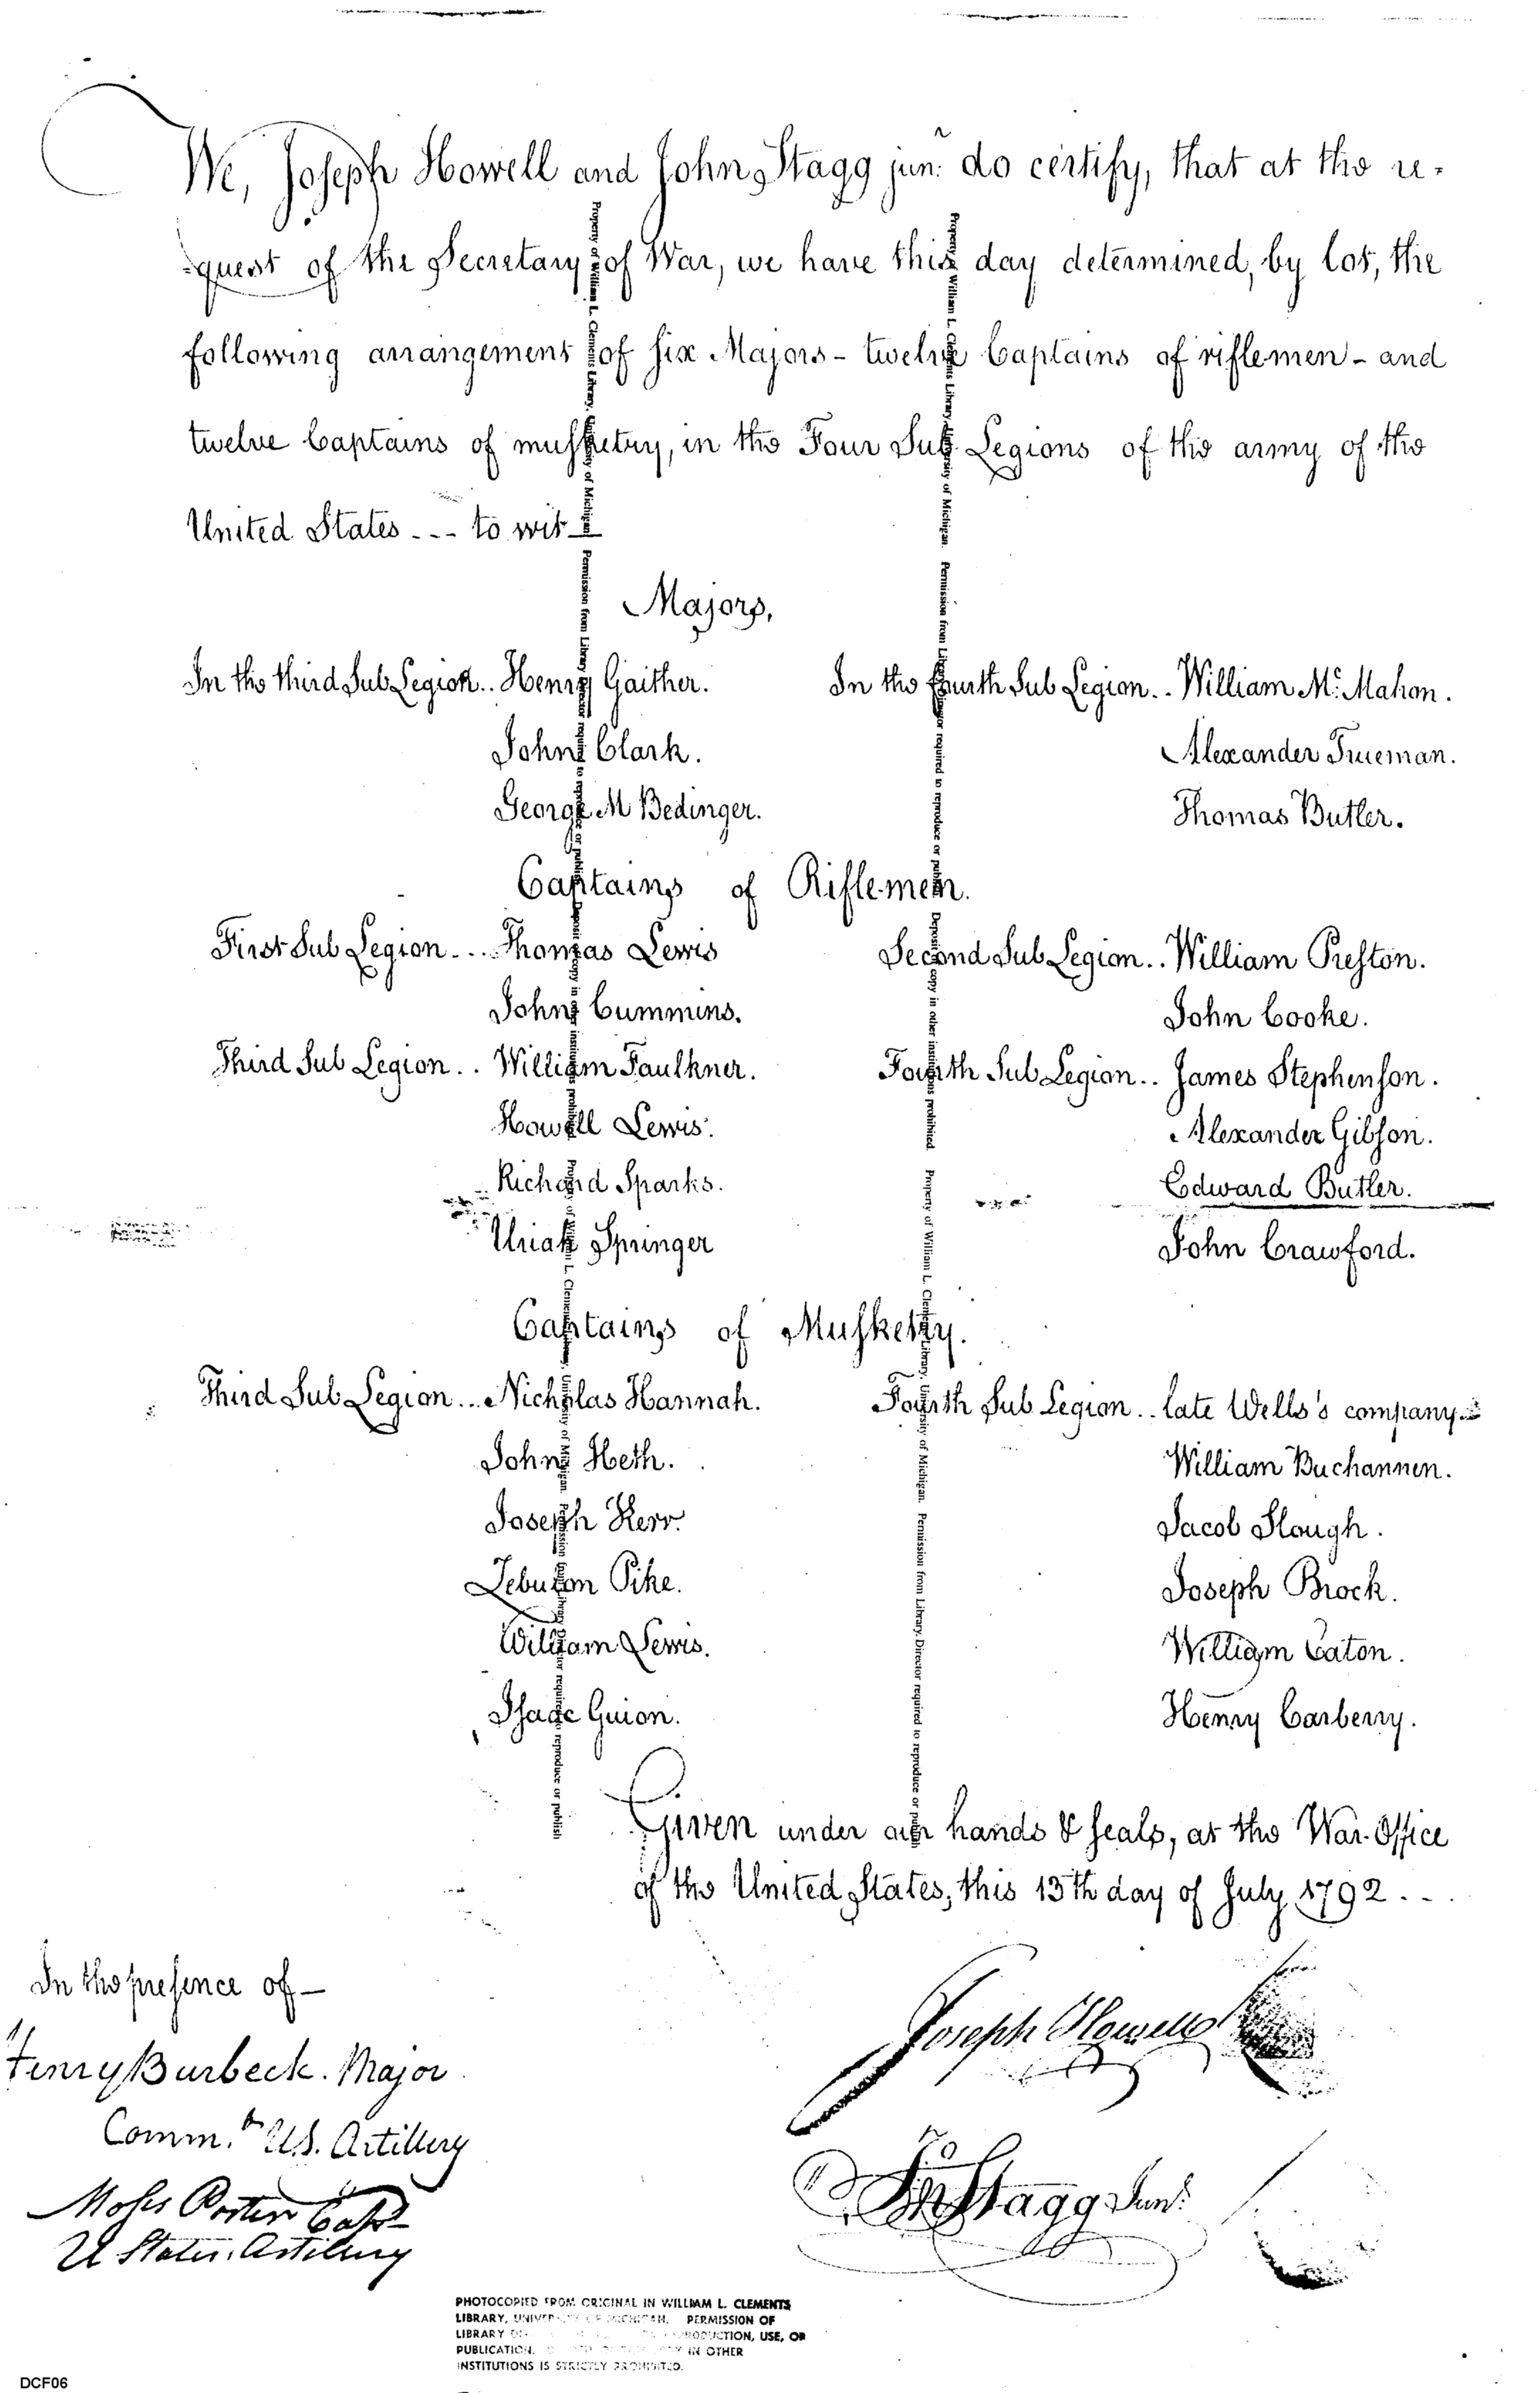 We, Joseph Howell and John Stagg junr. do certify, that at the re-
-quest of the Secretary of War, we have this day determined, by lot, the
following arrangement of six Majors - twelve Captains of riflemen - and
twelve Captains of musketry, in the Four Sub Legions of the army of the
United States --- to wit
Majors,
In the third Sub Legion.. Henry Gaither. In the fourth Sub Legion.. William Mc.Mahon.
John Clark. Alexander Trueman.
George M Bedinger. Thomas Butler.
Captains of Riflemen.
First Sub Legion.... Thomas Lewis Second Sub Legion.. William Preston.
John Cummins. John Cooke.
Third Sub Legion.. William Faulkner. Fourth Sub Legion.. James Stephenson.
Howell Lewis. Alexander Gibson.
Richard Sparks. Edward Butler.
Uriah Springer John Crawford.
Captains of Musketry.
Third Sub Legion... Nicholas Hannah. Fourth Sub Legion.. late Wells's company
John Heth. William Buchannen.
Joseph Kerr. Jacob Slough.
Zebulon Pike. Joseph Brock.
William Lewis. William Eaton.
Isaac Guion. Henry Carberry.
Given under our hands & seals, at the War-Office
of the United States, this 13th day of July 1792...
In the presence of -
Henry Burbeck. Major
Commt. U.S. Artillery
Moses Porter Capt
U States. Artillery
Joseph Howell
Jno Stagg Junr.
Property of William L. Clements Library, University of Michigan. Permission from Library Director required to reproduce or publish. Deposit of copy in other institutions prohibited. Property of William L. Clements Library, University of Michigan. Permission from Library Director required to reproduce or publish
Property of William L. Clements Library, University of Michigan. Permission from Library Director required to reproduce or publish. Deposit of copy in other institutions prohibited. Property of William L. Clements Library, University of Michigan. Permission from Library Director required to reproduce or publish
PHOTOCOPIED FROM ORIGINAL IN WILLIAM L. CLEMENTS
LIBRARY, UNIVERSITY OF MICHIGAN. PERMISSION OF
LIBRARY REPRODUCTION, USE, OR
PUBLICATION. COPY IN OTHER
INSTITUTIONS IS STRICTLY PROHIBITED.
DCF06